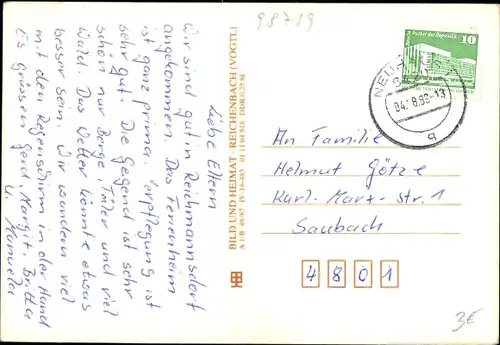 98739
Liebe Eltern
Wir sind gut in Reichmannsdorf
angekommen. Das Ferienheim
ist ganz prima. Verpflegung ist
sehr gut. Die Gegend ist sehr
schön nur Berge, Täler und viel
Wald. Das Wetter könnte etwas
besser sein. Wir wandern viel
mit den Regenschirm in der Hand
Es grüssen Gerd, Margit, Britta
u. Manuela
BILD UND HEIMAT · REICHENBACH (VOGTL)
A 1/B 49/87 IV-14-483 01 11 04 518 DDR 0,25 M
10
Palast der Republik
04.8.88-13
q
An Familie
Helmut Götze
Karl-Marx-str. 1
Saubach
4801
3€